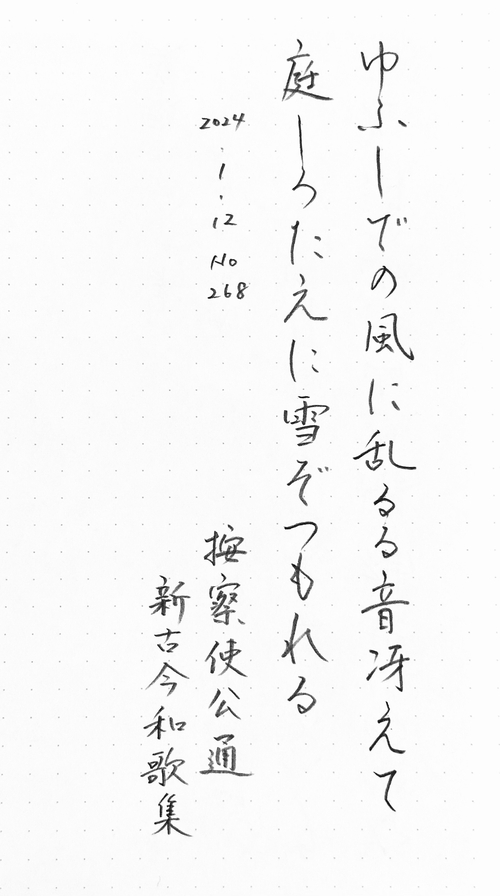 ゆふしでの風に乱るる音冴えて
庭しろたえに雪ぞつもれる
2024.1.12 No 268
按察使公通
新古今和歌集